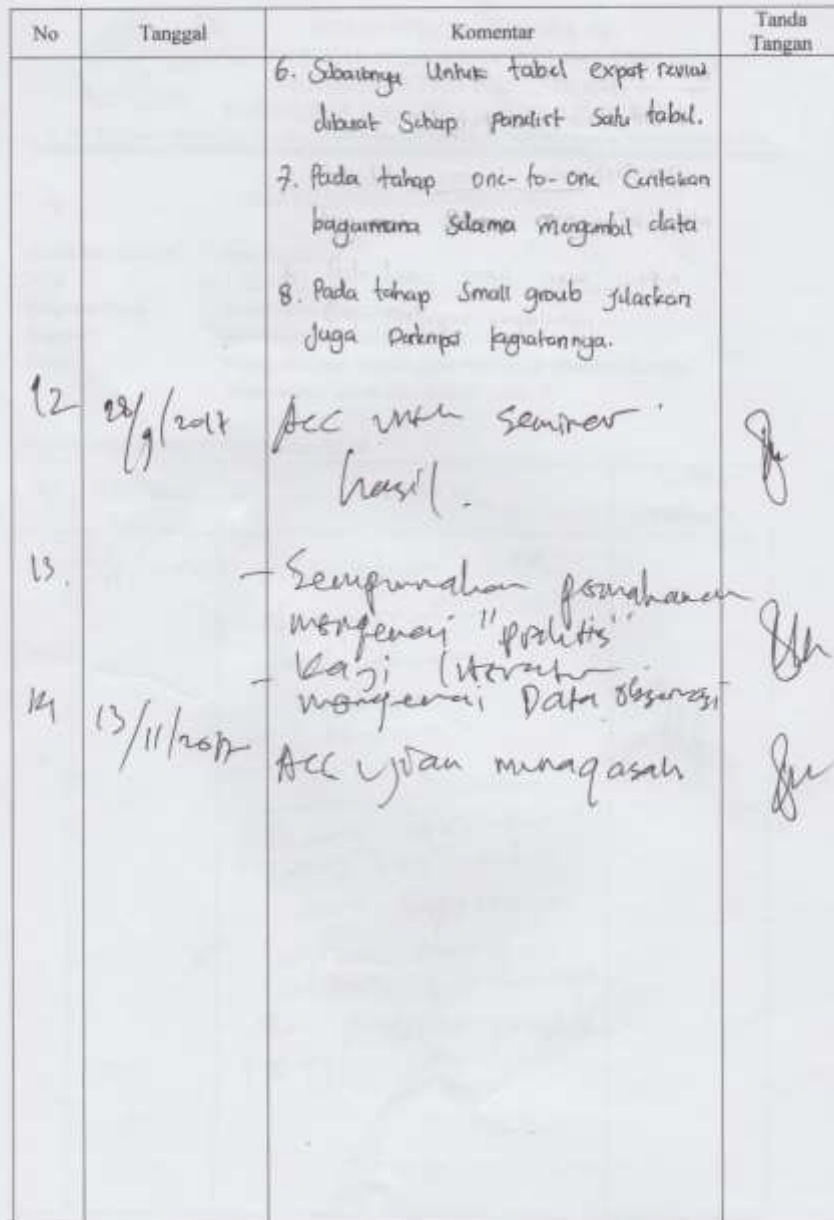 No Tanggal Komentar Tanda Tangan
6. Sebaiknya Untuk tabel expert review
dibuat Setiap Satu tabel.
7. Pada tahap one-to-one Ceritakan
bagaimana Selama mengambil data
8. Pada tahap Small groub jelaskan
Juga kegiatannya.
12 28/9/2017 Acc untuk seminar
hasil.
13. - Sempurnakan
mengenai "praktis"
- Kaji literatur
mengenai Data observasi
14 13/11/2017 Acc ujian munaqasah